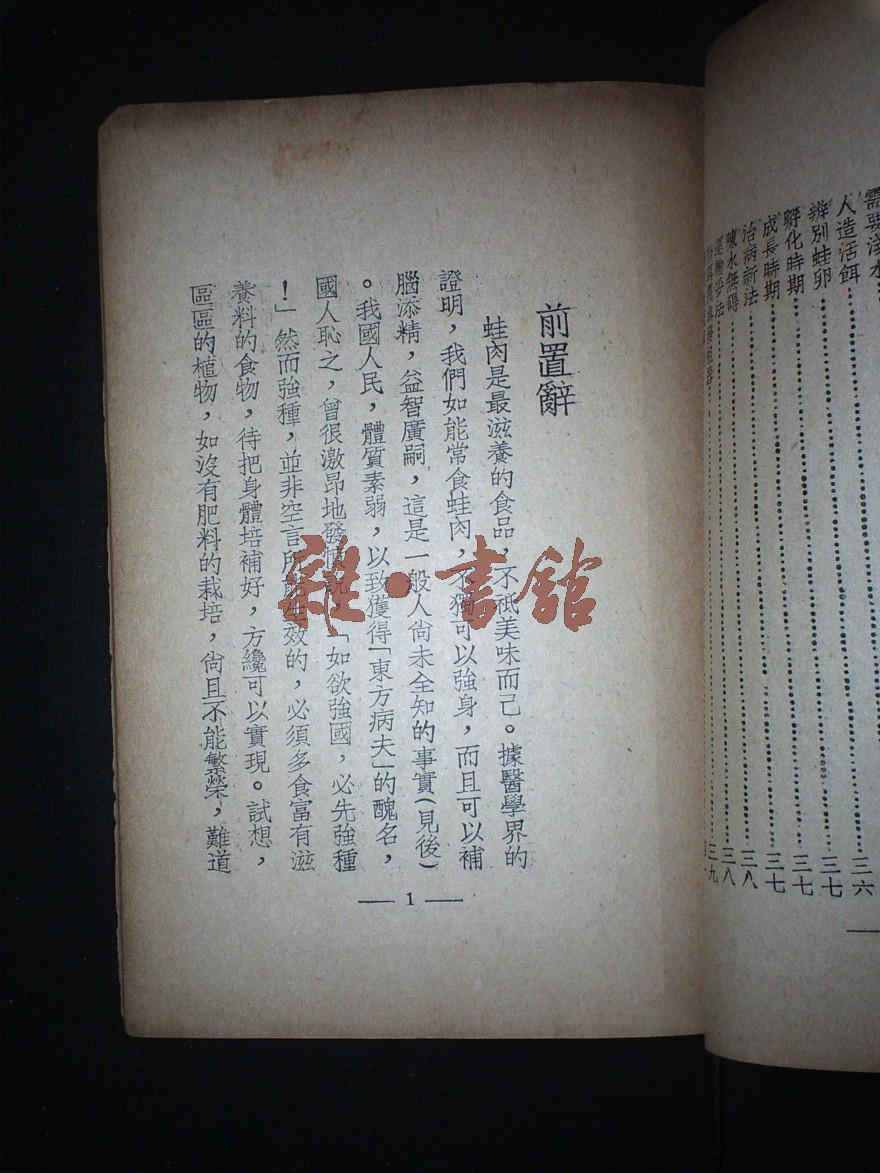 需要淺水
人造活餌…三六
辨別蛙卵…三七
孵化時期…三七
成長時期…三七
治病新法…三八
嗅水無碍…三八
運輸妥法…三九
前置辭
蛙肉是最滋養的食品，不祇美味而已。據醫學界的
證明，我們如能常食蛙肉，不獨可以強身，而且可以補
腦添精，益智廣嗣，這是一般人尙未全知的事實(見後)
。我國人民，體質素弱，以致獲得「東方病夫」的醜名，
國人恥之，曾很激昻地發憤說，「如欲強國，必先強種
！」然而強種，並非空言所能生效的，必須多食富有滋
養料的食物，待把身體培補好，方纔可以實現。試想，
區區的植物，如沒有肥料的栽培，尙且不能繁榮，難道
— 1 —
雜·書館